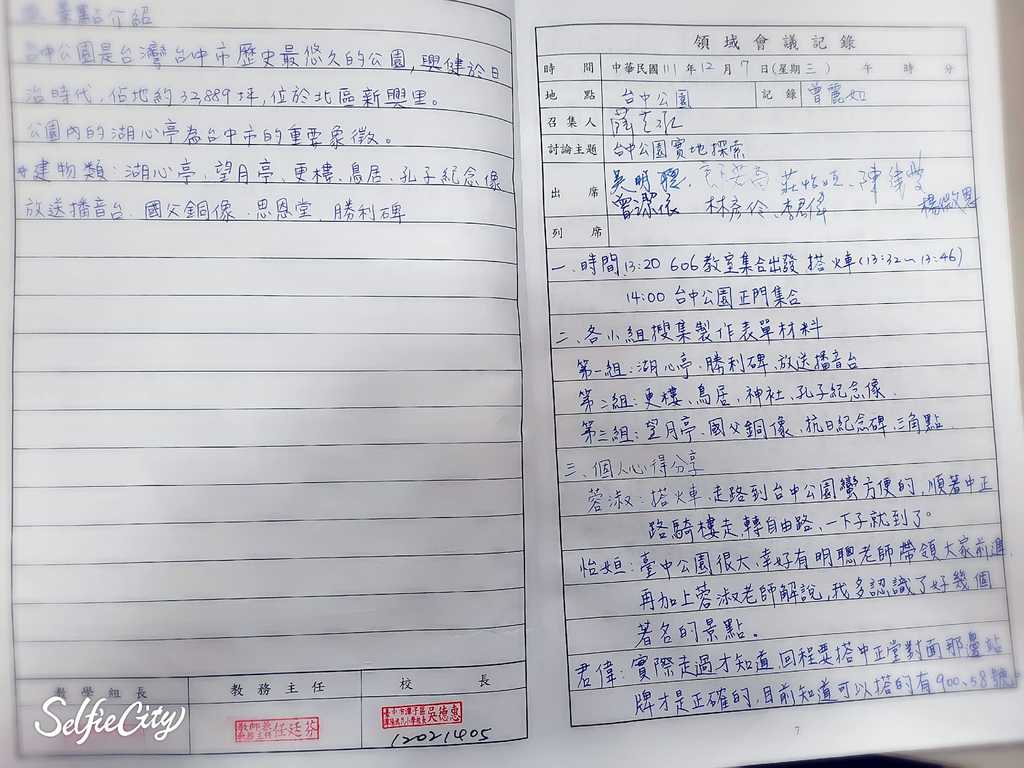 景點介紹
台中公園是台灣台中市歷史最悠久的公園,興健於日
治時代,佔地約32,889坪,位於北區新興里。
公園內的湖心亭為台中市的重要象徵。
*建物類:湖心亭、望月亭、更樓、鳥居、孔子紀念像
放送播音台、國父銅像、思恩堂、勝利碑
教學組長
教務主任
校長
教師兼
教務主任 任廷芬
吳德惠
12021405
SelfieCity
領域會議記錄
時間 中華民國111年12月7日(星期三) 午 時 分
地點 台中公園 記錄 曾麗如
召集人
討論主題 台中公園實地探索
出席 吳明聰、莊怡姮、陳
曾潔依 林彥伶、李君偉 楊
列席
一、時間13:20 606教室集合出發 搭火車(13:32~13:46)
14:00 台中公園正門集合
二、各小組搜集製作表單材料
第一組:湖心亭、勝利碑、放送播音台
第二組:更樓、鳥居、神社、孔子紀念像、
第三組:望月亭、國父銅像、抗日紀念碑、三角點、
三、個人心得分享
蓉淑:搭火車、走路到台中公園蠻方便的,順著中正
路騎樓走,轉自由路、一下子就到了。
怡姮:臺中公園很大,幸好有明聰老師帶領大家前進,
再加上蓉淑老師解說,我多認識了好幾個
著名的景點。
君偉:實際走過才知道,回程要搭中正堂對面那邊站
牌才是正確的,目前知道可以搭的有900、58號。
7